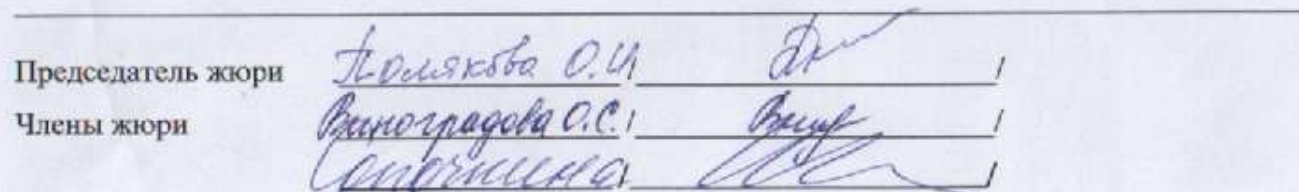 Председатель жюри Полякова О.И / /
Члены жюри Виноградова О.С. / /
/ /